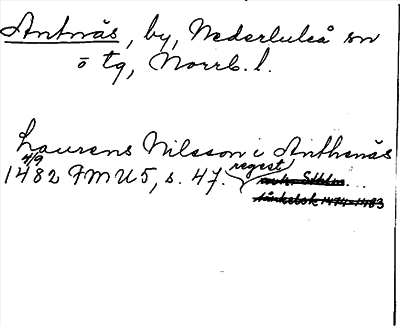 Antnäs, by, Nederluleå sn
ö tg, Norrb. l.
Laurens Nilsson i Anthenäs
4/9
1482 FMU5, s. 47. regest
avtr. Sthlm...
tänkebok 1474-1483